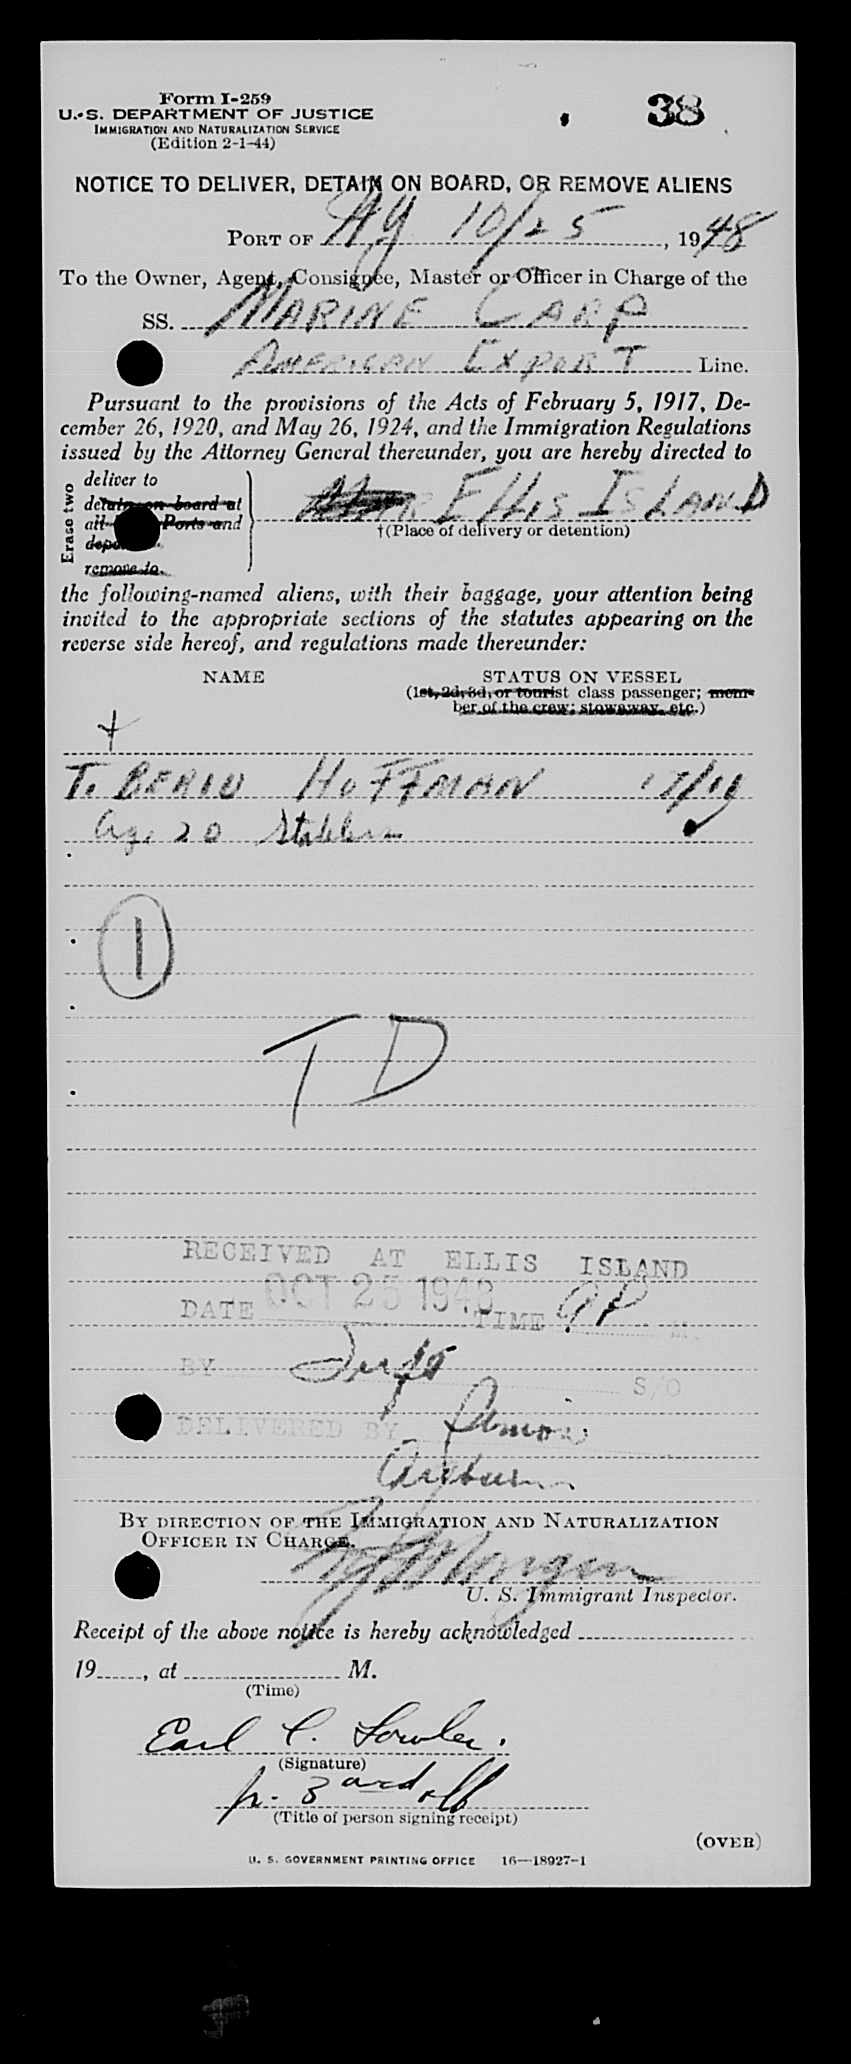 Form I-259
38
U. S. DEPARTMENT OF JUSTICE
IMMIGRATION AND NATURALIZATION SERVICE
(Edition 2-1-44)
NOTICE TO DELIVER, DETAIN ON BOARD, OR REMOVE ALIENS
PORT OF NY 10/25, 1948
To the Owner, Agent, Consignee, Master or Officer in Charge of the
SS. MARINE CARP
AMERICAN EXPORT Line.
Pursuant to the provisions of the Acts of February 5, 1917, De-
cember 26, 1920, and May 26, 1924, and the Immigration Regulations
issued by the Attorney General thereunder, you are hereby directed to
Erase two
deliver to
detain on board at
all Ports and
remove to
ELLIS ISLAND
†(Place of delivery or detention)
the following-named aliens, with their baggage, your attention being
invited to the appropriate sections of the statutes appearing on the
reverse side hereof, and regulations made thereunder:
NAME STATUS ON VESSEL
(1st, 2d, 3d, or tourist class passenger; mem-
ber of the crew; stowaway, etc.)
T. HOFFMAN 17/19
Age 20
1
TD
RECEIVED AT ELLIS ISLAND
DATE OCT 25 1948 TIME 9P M.
BY S/O
DELIVERED BY
BY DIRECTION OF THE IMMIGRATION AND NATURALIZATION
OFFICER IN CHARGE.
Morgan
U. S. Immigrant Inspector.
Receipt of the above notice is hereby acknowledged
19, at M.
(Time)
Earl C. Fowler.
(Signature)
(Title of person signing receipt)
(OVER)
U. S. GOVERNMENT PRINTING OFFICE 16—18927-1